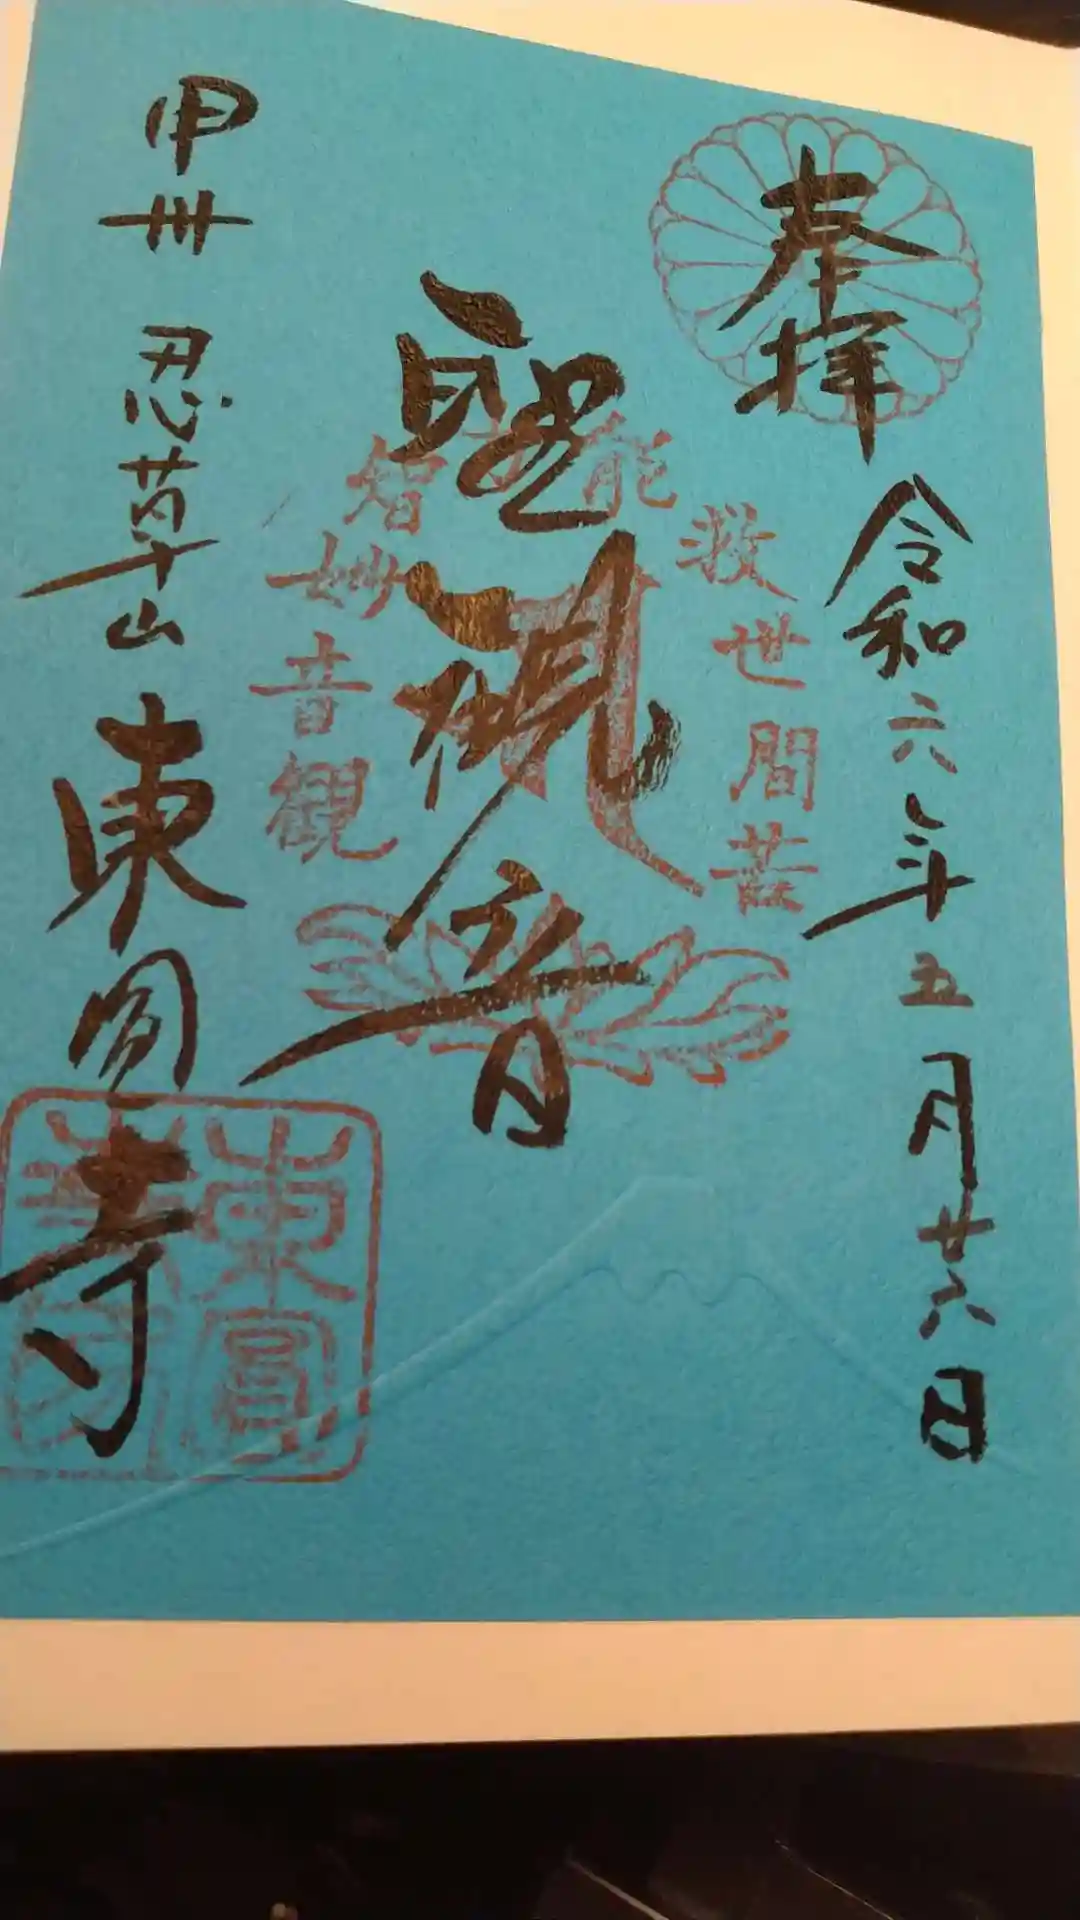 奉拝
令和六年五月廿六日
聖観音
観音妙智力
能救世間苦
甲州 忍草山 東圓寺
東圓
寺印